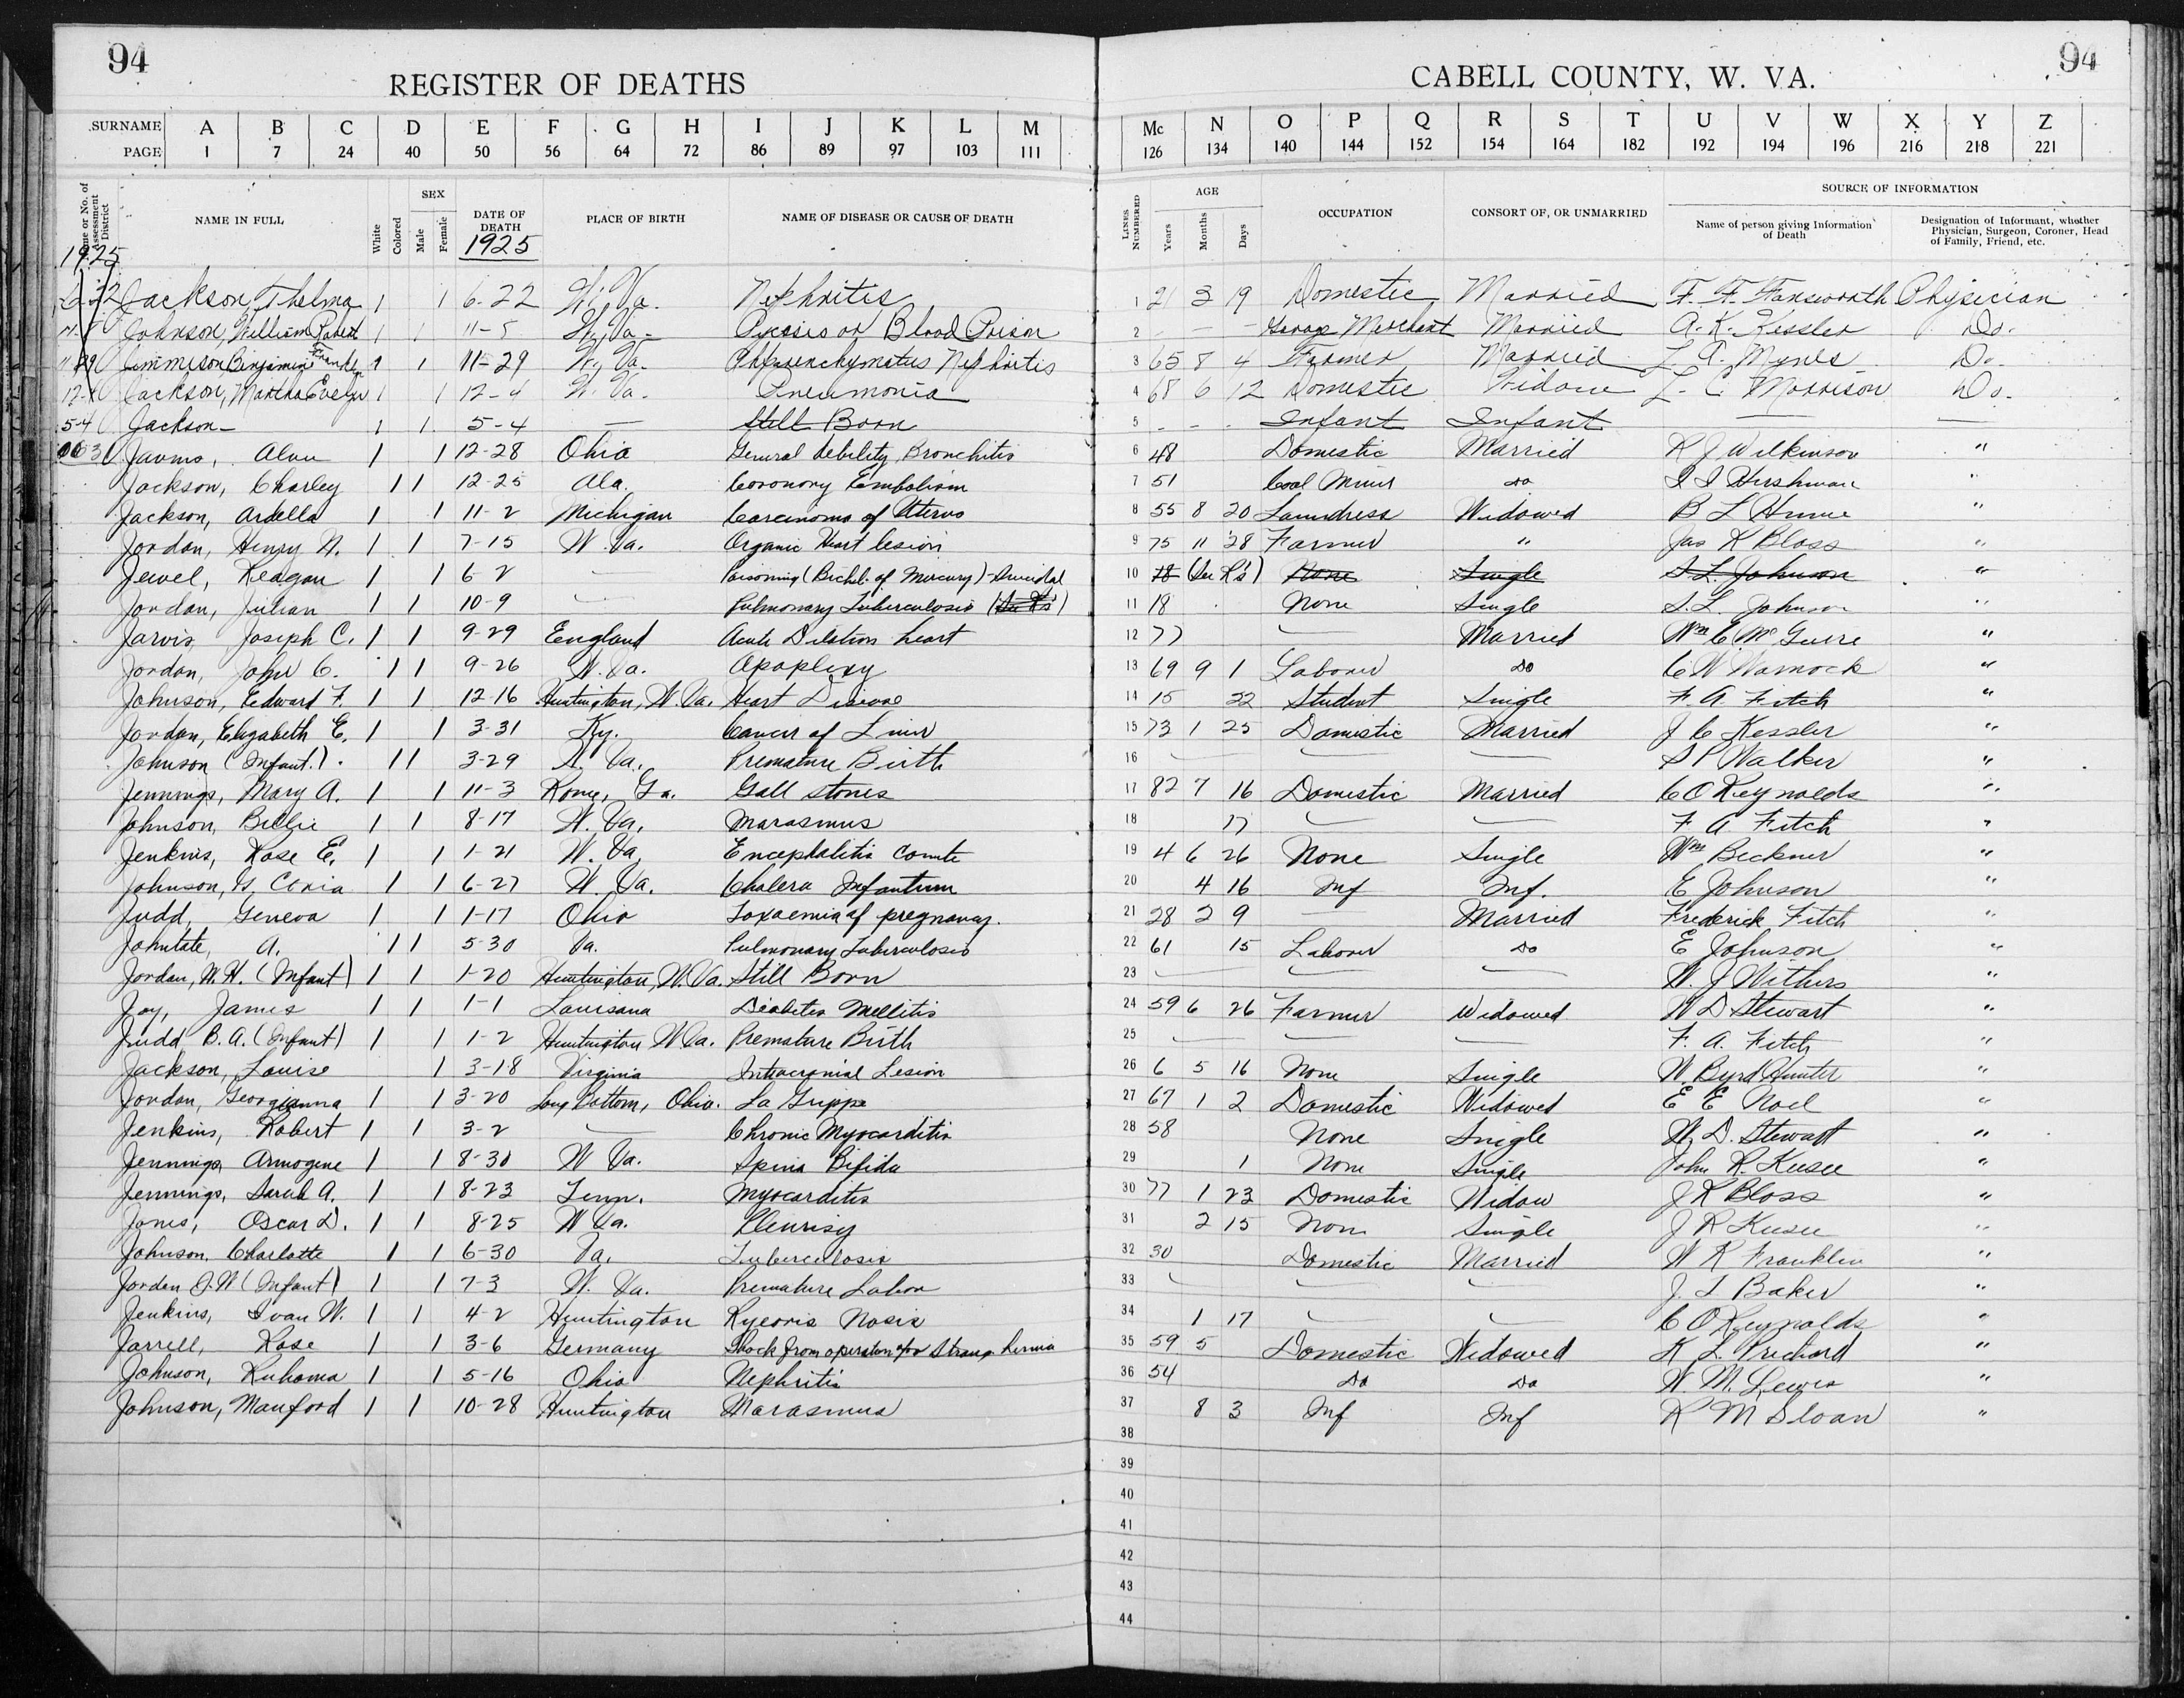 94
REGISTER OF DEATHS
CABELL COUNTY, W. VA.
94
SURNAME A B C D E F G H I J K L M Mc N O P Q R S T U V W X Y Z
PAGE 1 7 24 40 50 56 64 72 86 89 97 103 111 126 134 140 144 152 154 164 182 192 194 196 216 218 221
Name or No. of Assessment District
NAME IN FULL
White
Colored
SEX
Male
Female
DATE OF DEATH
1925
PLACE OF BIRTH
NAME OF DISEASE OR CAUSE OF DEATH
LINES NUMBERED
AGE
Years
Months
Days
OCCUPATION
CONSORT OF, OR UNMARRIED
SOURCE OF INFORMATION
Name of person giving Information of Death
Designation of Informant, whether Physician, Surgeon, Coroner, Head of Family, Friend, etc.
1925
Jackson, Thelma 1 1 6-22 W. Va. Nephritis 1 21 3 19 Domestic Married F. F. Farnsworth Physician
Johnson, William Robert 1 1 11-5 W. Va. or Blood Poison 2 - - - Merchant Married A. K. Kessler Do.
11-29 Jimmison Binjamine Franklin 1 1 11-29 W. Va. Nephritis 3 65 8 4 Farmer Married L. A. Mynes Do.
12-4 Jackson, Martha Evelyn 1 1 12-4 W. Va. Pneumonia 4 68 6 12 Domestic Widow L. C. Morrison Do.
5-4 Jackson - 1 1 5-4 — Still Born 5 - - - Infant Infant — —
1 1 12-28 Ohio General debility, Bronchitis 6 48 Domestic Married R J Wilkinson "
Jackson, Charley 1 1 12-25 Ala. Coronory Embolism 7 51 Coal Miner do I I Hirshman "
Jackson, Ardella 1 1 11-2 Michigan Carcinoma of Uterus 8 55 8 20 Laundress Widowed B L Hume "
Jordan, Henry N. 1 1 7-15 W. Va. Organic Heart lesion 9 75 11 28 Farmer " Jas R Bloss "
Jewel, Reagan 1 1 6-2 — Poisoning (Bichl. of Mercury) Suicidal 10 18 (See R's) None Single S. L. Johnson "
Jordan, Julian 1 1 10-9 — Pulmonary Tuberculosis (See R's) 11 18 None Single S. L. Johnson "
Jarvis, Joseph C. 1 1 9-29 England Acute Dilation heart 12 77 — Married Wm C. McGuire "
Jordan, John C. 1 1 9-26 W. Va. Apoplexy 13 69 9 1 Laborer Do C W Warnock "
Johnson, Edward F. 1 1 12-16 Huntington, W. Va. Heart Disease 14 15 22 Student Single F. A. Fitch "
Jordan, Elizabeth E. 1 1 3-31 Ky. Cancer of Liver 15 73 1 25 Domestic Married J C Kessler "
Johnson (Infant.) 1 1 3-29 W. Va. Premature Birth 16 — — — S P Walker "
Jennings, Mary A. 1 1 11-3 Rome, Ga. Gall stones 17 82 7 16 Domestic Married C O Reynolds "
Johnson, Billie 1 1 8-17 W. Va. Marasmus 18 17 — — F A Fitch "
Jenkins, Rose E. 1 1 1-21 W. Va. Encephalitis 19 4 6 26 None Single Wm Beckner "
Johnson, 1 1 6-27 W. Va. Cholera Infantum 20 4 16 Inf Inf. E Johnson "
Judd, Geneva 1 1 1-17 Ohio Toxaemia of pregnancy. 21 28 2 9 — Married Frederick Fitch "
Johntate, A. 1 1 5-30 Va. Pulmonary Tuberculosis 22 61 15 Laborer Do E Johnson "
Jordan, W. H. (Infant) 1 1 1-20 Huntington, W. Va. Still Born 23 — — — W. J Withers "
Joy, James 1 1 1-1 Louisana Diabetes Mellitis 24 59 6 26 Farmer Widowed W D Stewart "
Judd B. A. (Infant) 1 1 1-2 Huntington W. Va. Premature Birth 25 — — — F. A. Fitch "
Jackson, Louise 1 3-18 Virginia Intracranial Lesion 26 6 5 16 None Single W. Byrd Hunter "
Jordan, Georgianna 1 1 3-20 Long Bottom, Ohio. La Grippe 27 67 1 2 Domestic Widowed E E Noel "
Jenkins, Robert 1 1 3-2 — Chronic Myocarditis 28 58 None Single W. D. Stewart "
Jennings, Armogene 1 1 8-30 W Va. Spina Bifida 29 1 None Single John R. Keesee "
Jennings, Sarah A. 1 1 8-23 Tenn. Myocarditis 30 77 1 23 Domestic Widow J R Bloss "
Jones, Oscar D. 1 1 8-25 W Va. Pleurisy 31 2 15 None Single J R Keesee "
Johnson, Charlotte 1 1 6-30 Va. Tuberculosis 32 30 Domestic Married W R Franklin "
Jordan J. W (Infant) 1 1 7-3 W. Va. Premature Labor 33 — — — J. T Baker "
Jenkins, Ivan W. 1 1 4-2 Huntington 34 1 17 — — C O Reynolds "
Jarrell, Rose 1 1 3-6 Germany Shock from operation for Strang. hernia 35 59 5 Domestic Widowed K L Prichard "
Johnson, Ruhama 1 1 5-16 Ohio Nephritis 36 54 Do Do W. M. Lewis "
Johnson, Manford 1 1 10-28 Huntington Marasmus 37 8 3 Inf Inf R M Sloan "
38
39
40
41
42
43
44